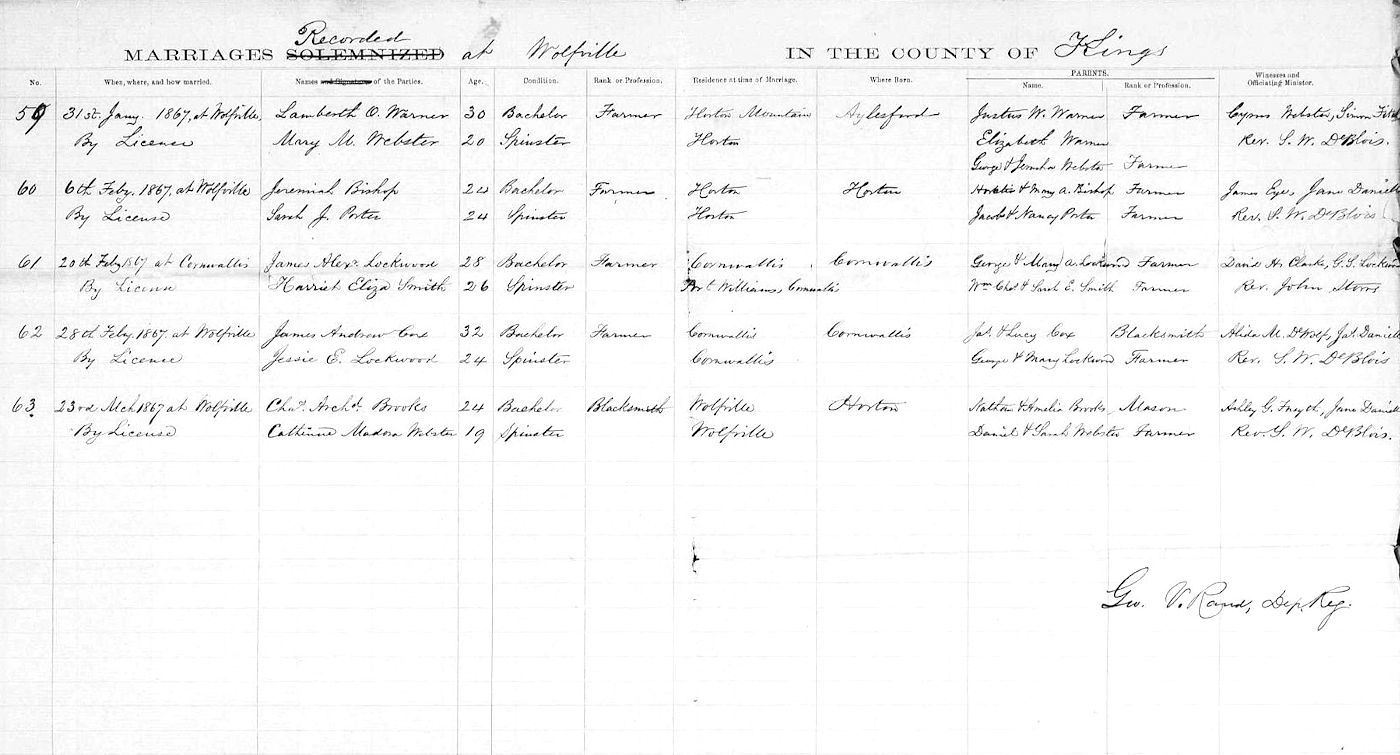 Recorded
MARRIAGES SOLEMNIZED at Wolfville IN THE COUNTY OF Kings
No. When, where, and how married. Names and Signature of the Parties. Age. Condition. Rank or Profession. Residence at time of Marriage. Where Born. PARENTS. Name. Rank or Profession. Witnesses and Officiating Minister.
59 31st Jany. 1867, at Wolfville, Lamberth O. Warner 30 Bachelor Farmer Horton Mountain Aylesford Justus W. Warner Farmer Cyrus Webster, Simon Fitch
By License Mary M. Webster 20 Spinster Horton Elizabeth Warner Rev. S. W. DeBlois.
George & Jemima Webster Farmer
60 6th Feby. 1867, at Wolfville Jeremiah Bishop 24 Bachelor Farmer Horton Horton & Mary A. Bishop Farmer James Eye, Jane Daniels
By License Sarah J. Porter 24 Spinster Horton Jacob & Nancy Porter Farmer Rev. S. W. DeBlois
61 20th Feby 1867 at Cornwallis James Alexr. Lockwood 28 Bachelor Farmer Cornwallis Cornwallis George & Mary A. Lockwood Farmer David H. Clarke, G. S. Lockwood
By License Harriet Eliza Smith 26 Spinster Port Williams, Cornwallis Wm Chas & Sarah E. Smith Farmer Rev. John Storrs
62 28th Feby. 1867, at Wolfville James Andrew Cox 32 Bachelor Farmer Cornwallis Cornwallis Jas. & Lucy Cox Blacksmith Alida M. DeWolf, Jas. Daniels
By License Jessie E. Lockwood 24 Spinster Cornwallis George & Mary Lockwood Farmer Rev. S. W. DeBlois
63. 23rd Mch 1867 at Wolfville Chas. Archd. Brooks 24 Bachelor Blacksmith Wolfville Horton Nathan & Amelia Brooks Mason Ashley G. Forsyth, Jane Daniels
By License Catherine Madora Webster 19 Spinster Wolfville Daniel & Sarah Webster Farmer Rev. S. W. DeBlois.
Geo. V. Rand, Dep. Reg.